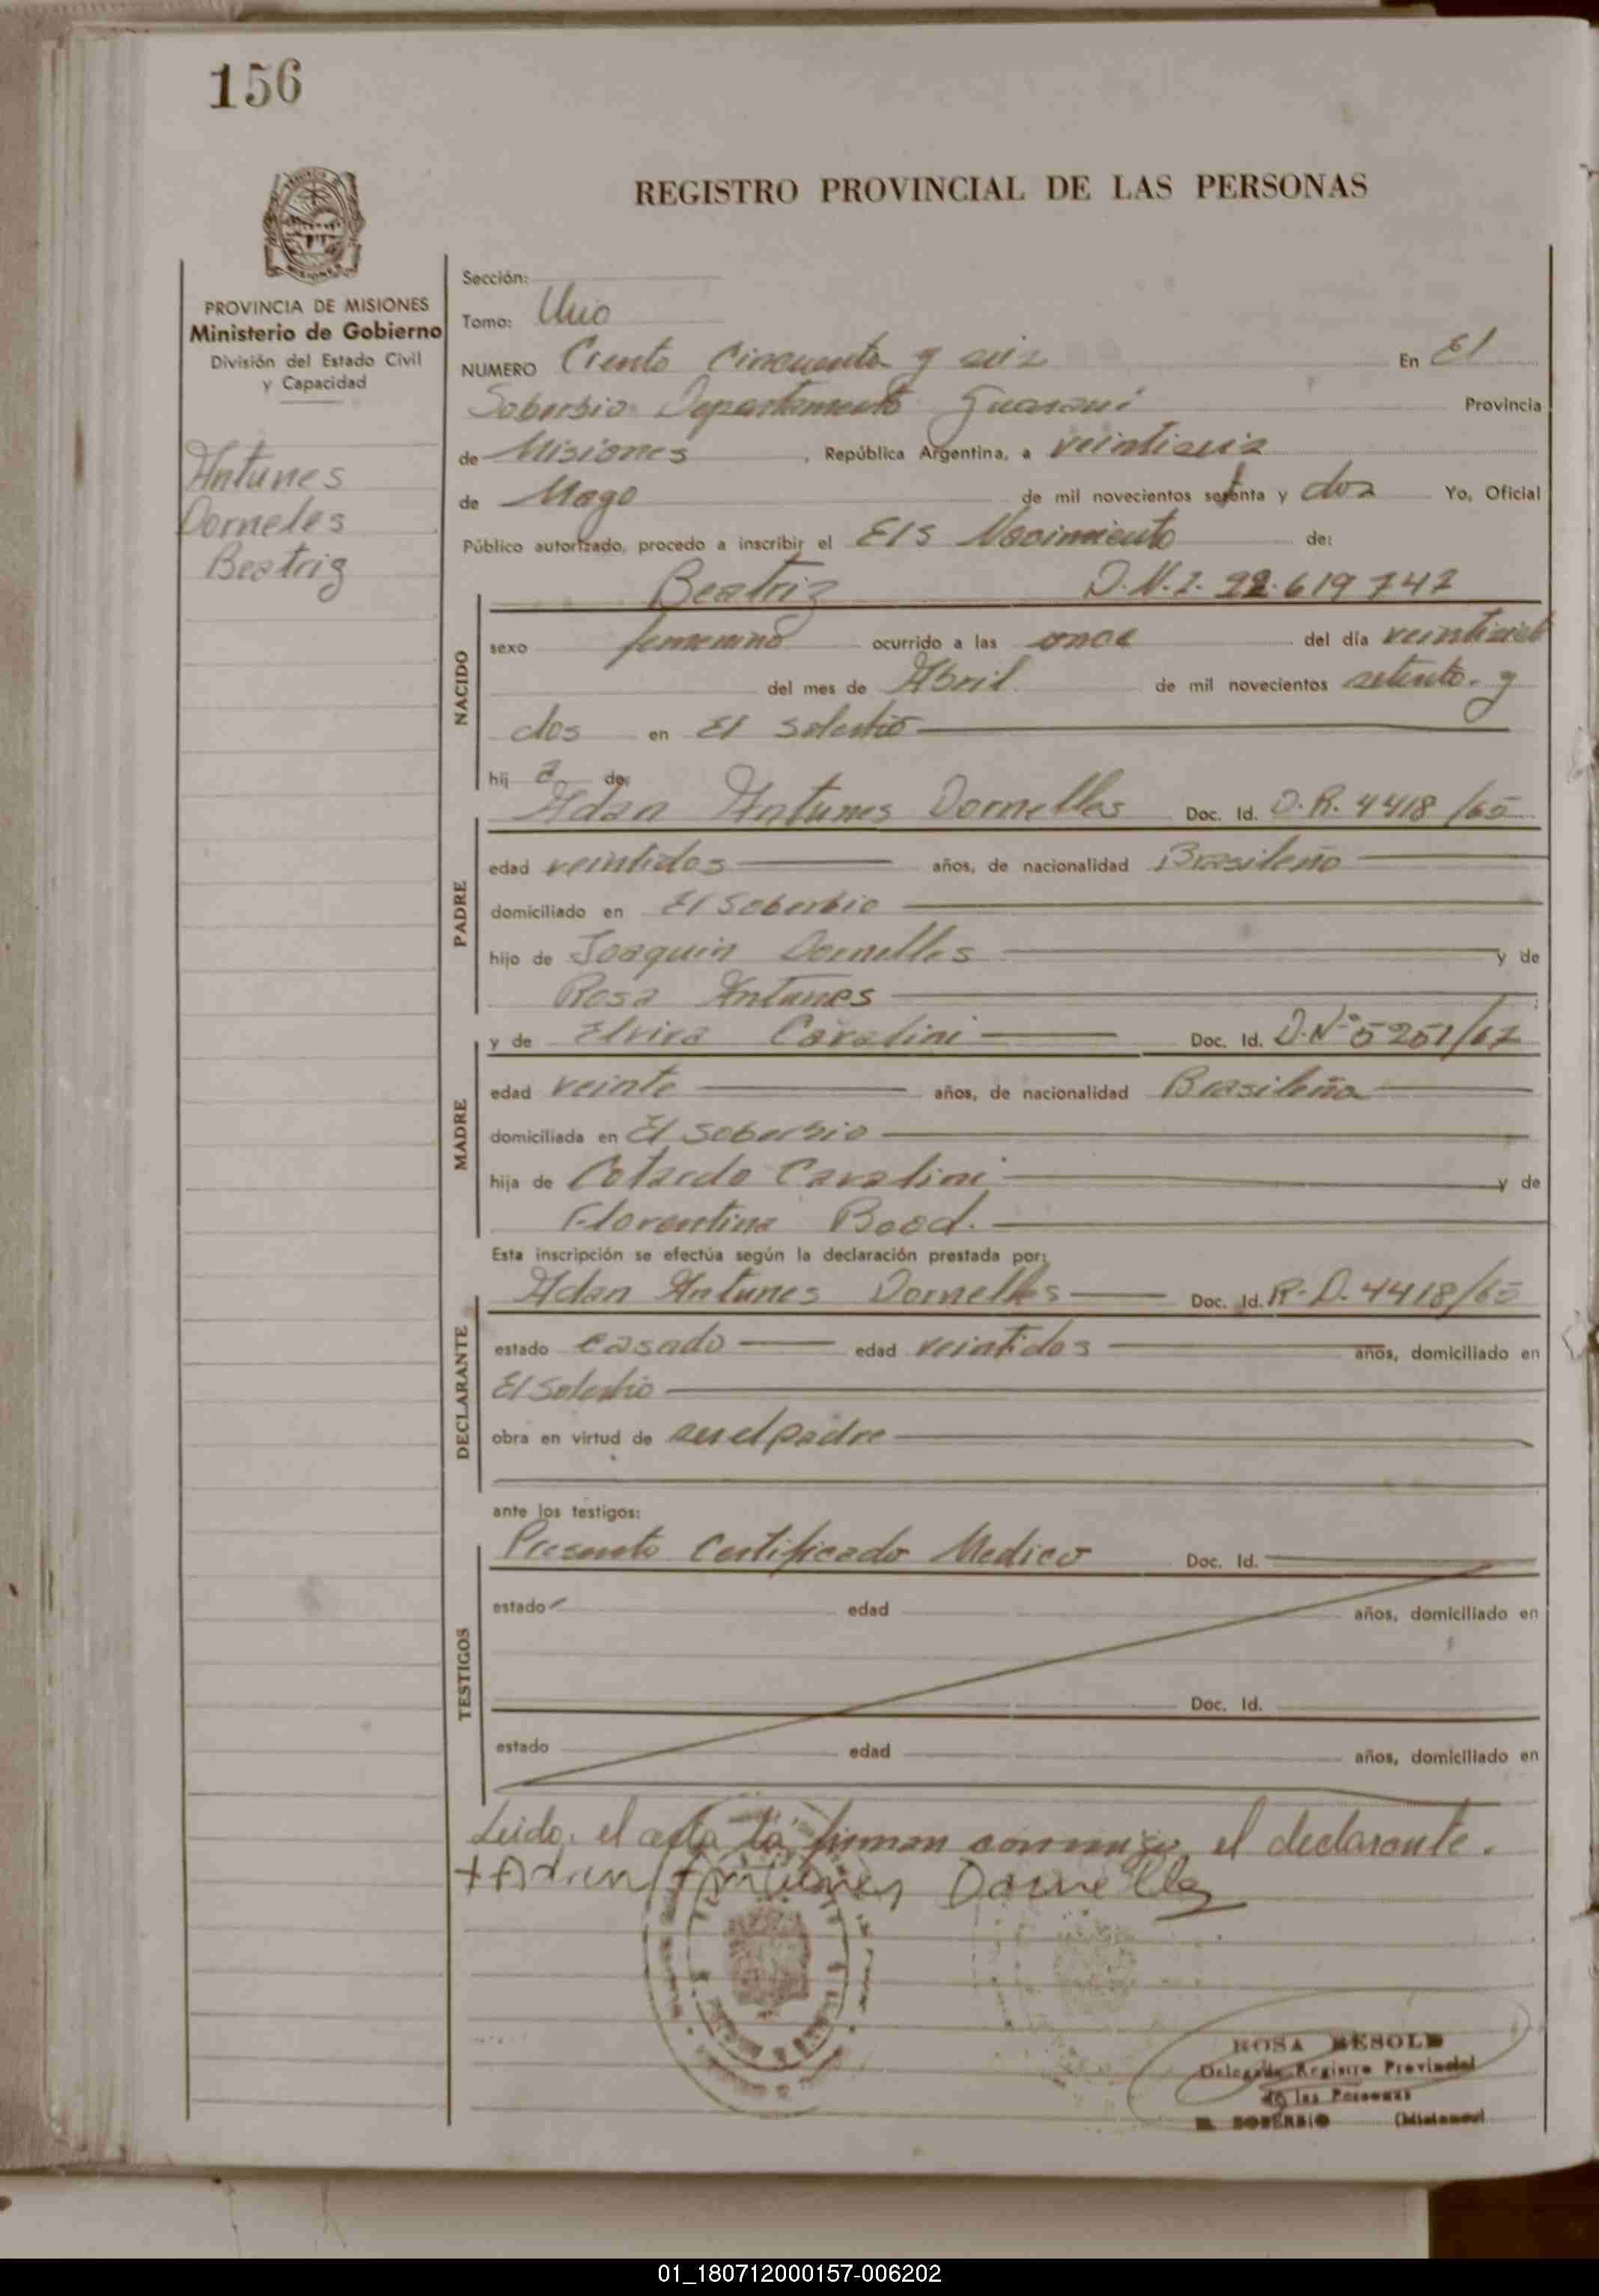 156
REGISTRO PROVINCIAL DE LAS PERSONAS
PROVINCIA DE MISIONES
Ministerio de Gobierno
División del Estado Civil
y Capacidad
Antunes
Dorneles
Beatriz
Sección:
Tomo: Uno
NUMERO Ciento Cincuenta y seis En El
Soberbio Departamento Guarani Provincia
de Misiones, República Argentina, a veintiseis
de Mayo de mil novecientos setenta y dos Yo, Oficial
Público autorizado, procedo a inscribir el Nacimiento de:
Beatriz D.N.I. 22.619747
NACIDO
sexo femenino ocurrido a las once del día
del mes de Abril de mil novecientos setenta y
dos en El Soberbio
hij a de:
Adan Antunes Dornelles Doc. Id. D.R. 4418/65
PADRE
edad veintidos años, de nacionalidad Brasileño
domiciliado en El Soberbio
hijo de Joaquin Dornelles y de
Rosa Antunes
y de Elvira Cavalini Doc. Id. D.Nº 5251/67
MADRE
edad veinte años, de nacionalidad Brasileña
domiciliada en El Soberbio
hija de Cavalini y de
Florentina
Esta inscripción se efectúa según la declaración prestada por:
Adan Antunes Dornelles Doc. Id. R.D. 4418/65
DECLARANTE
estado casado edad veintidos años, domiciliado en
El Soberbio
obra en virtud de ser el padre
ante los testigos:
Presento Certificado Medico Doc. Id.
TESTIGOS
estado edad años, domiciliado en
Doc. Id.
estado edad años, domiciliado en
Leida el acta la firman conmigo el declarante.
+Adan Antunes Dornelles
ROSA BESOLD
Delegada Registro Provincial
de las Personas
EL SOBERBIO (Misiones)
01_180712000157-006202